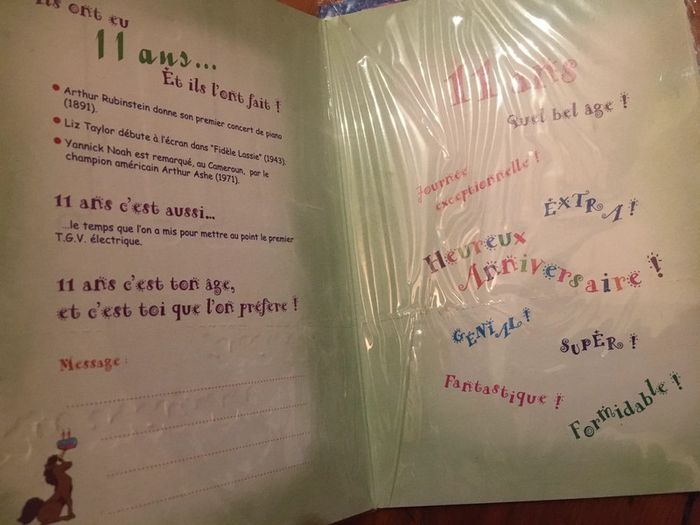 Ils ont eu
11 ans...
Et ils l'ont fait !
Arthur Rubinstein donne son premier concert de piano
(1891).
Liz Taylor débute à l'écran dans "Fidèle Lassie" (1943).
Yannick Noah est remarqué, au Cameroun, par le
champion américain Arthur Ashe (1971).
11 ans c'est aussi...
...le temps que l'on a mis pour mettre au point le premier
T.G.V. électrique.
11 ans c'est ton âge,
et c'est toi que l'on préfère !
Message :
11 ans
Quel bel âge !
Journée
exceptionnelle !
EXTRA !
Heureux
Anniversaire !
GÉNIAL !
SUPER !
Fantastique !
Formidable !